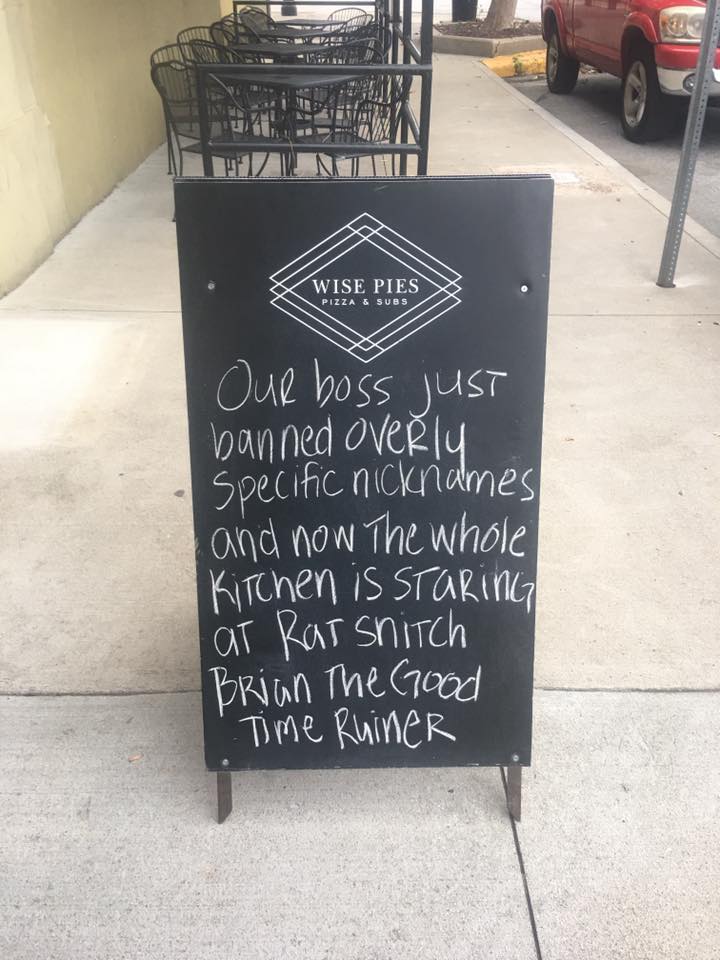 WISE PIES
PIZZA & SUBS
Our boss just
banned overly
specific nicknames
and now the whole
kitchen is staring
at Rat snitch
Brian the Good
Time Ruiner